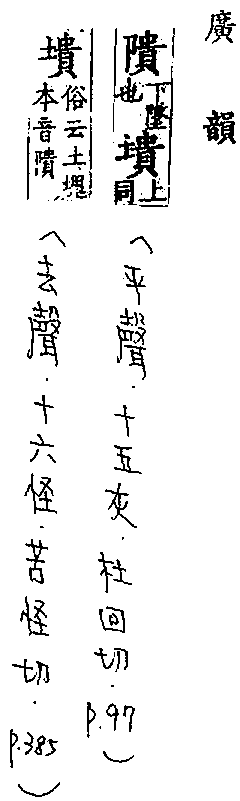 廣韻
隤下墜也墤上同
（平聲．十五灰．杜回切．p.97）
墤俗云土塊本音隤
（去聲．十六怪．苦怪切．p.385）